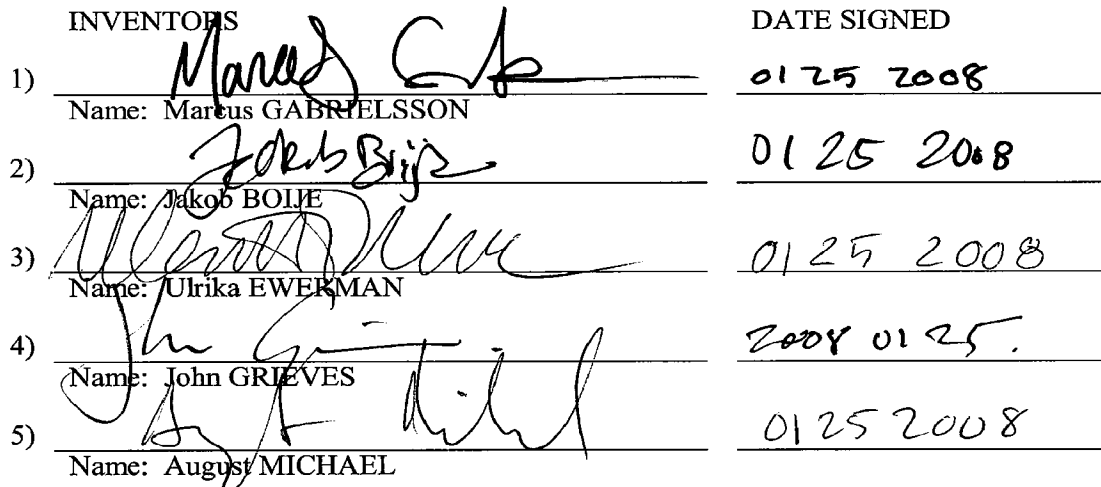 INVENTORS DATE SIGNED
1) 01 25 2008
Name: Marcus GABRIELSSON
2) Jakob Boije 01 25 2008
Name: Jakob BOIJE
3) 01 25 2008
Name: Ulrika EWERMAN
4) John 2008 01 25.
Name: John GRIEVES
5) 01 25 2008
Name: August MICHAEL